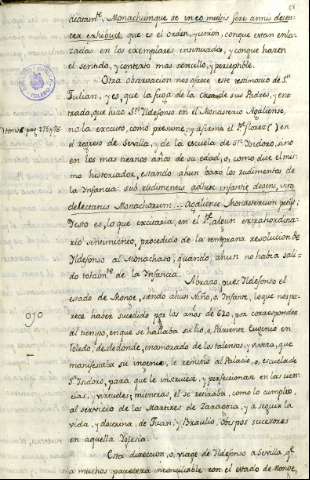 Monachumque se in eo multis fore annis decen-
ter exhibuit, que es el orden, y union, conque estan enla-
zadas en los exemplares enunciados, y conque hacen
el sentido, y contexto mas sencillo, y perceptible.
Otra observacion nos ofrece este testimonio de Sn
Julian, y es, que la fuga de la casa de sus Padres, y en-
trada, que hizo Sn Ildefonso en el Monasterio Agaliense,
no la executó, como presume, y afirma el Pe Florez) en
el regreso de Sevilla, y de la escuela de Sn Isidoro, sino
en los mas tiernos años de su edad, o, como dice el mis-
mo historiador, estando ahun baxo los rudimentos de
la Infancia: sub rudimentis adhuc infantie degens,
delectatus Monachorum... Agaliense Monasterium petiit
y esto es, lo que excitaria, en el Pe algun extrahordina-
rio sentimiento, procedido de la temprana resolucion de
Ildefonso al Monachato, quando ahun no habia sali-
do totalmte de la Infancia.
Abrazó, pues Ildefonso el
estado de Monge, siendo ahun Niño, o, Infante, lo que me pa-
rece haver sucedido por los años de 620, por corresponder
al tiempo, en que se hallaba su tio, o, Pariente Eugenio en
Toledo, de donde, enamorado de los talentos, y
manifestaba su ingenio, le remitió al Palacio, o, escuela de
Sn Isidoro, para que le instruyera, y perfeccionara en las cien-
cias, y virtudes; mientras, el se retiraba, como lo cumplió,
al servicio de los Martires de Zaragoza, y a seguir la
vida, y doctrina de Juan, y Braulio, obispos sucesores
en aquella Iglesia.
Esta direccion, o, viage de Ildefonso a Sevilla qe
a muchos parecerá inconciliable con el estado de Monge,